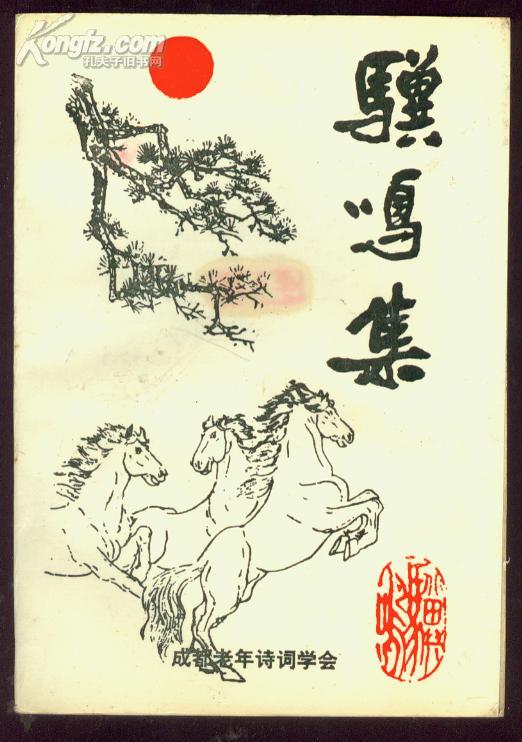 Kongfz.com
孔夫子旧书网
骥鸣集
成都老年诗词学会